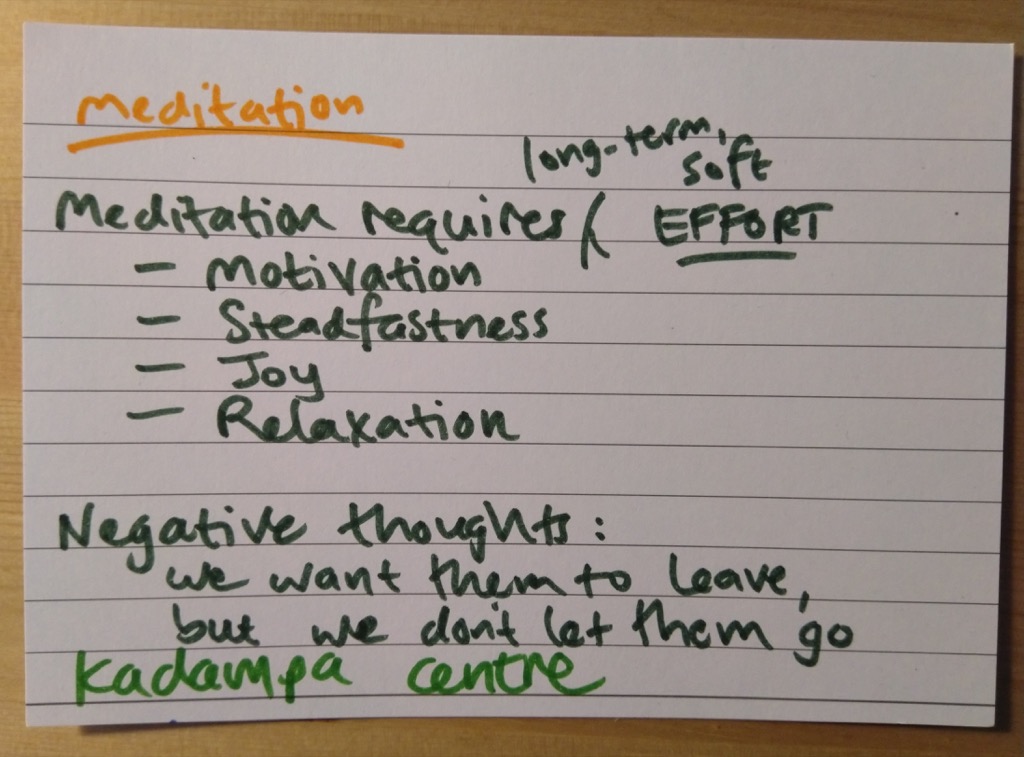 meditation
long-term,
soft
Meditation requires ( EFFORT
- Motivation
- Steadfastness
- Joy
- Relaxation
Negative thoughts:
we want them to leave,
but we don't let them go
Kadampa centre